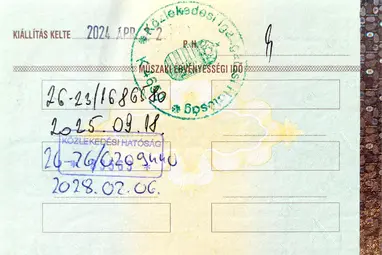 KIÁLLÍTÁS KELTE 2024 ÁPR 2.
P. H.
* Közlekedési Igazgatási Hatóság *
MŰSZAKI ÉRVÉNYESSÉGI IDŐ
26-23/1686580
2025.09.18.
KÖZLEKEDÉSI HATÓSÁG
26-26/0209440
2028.02.06.